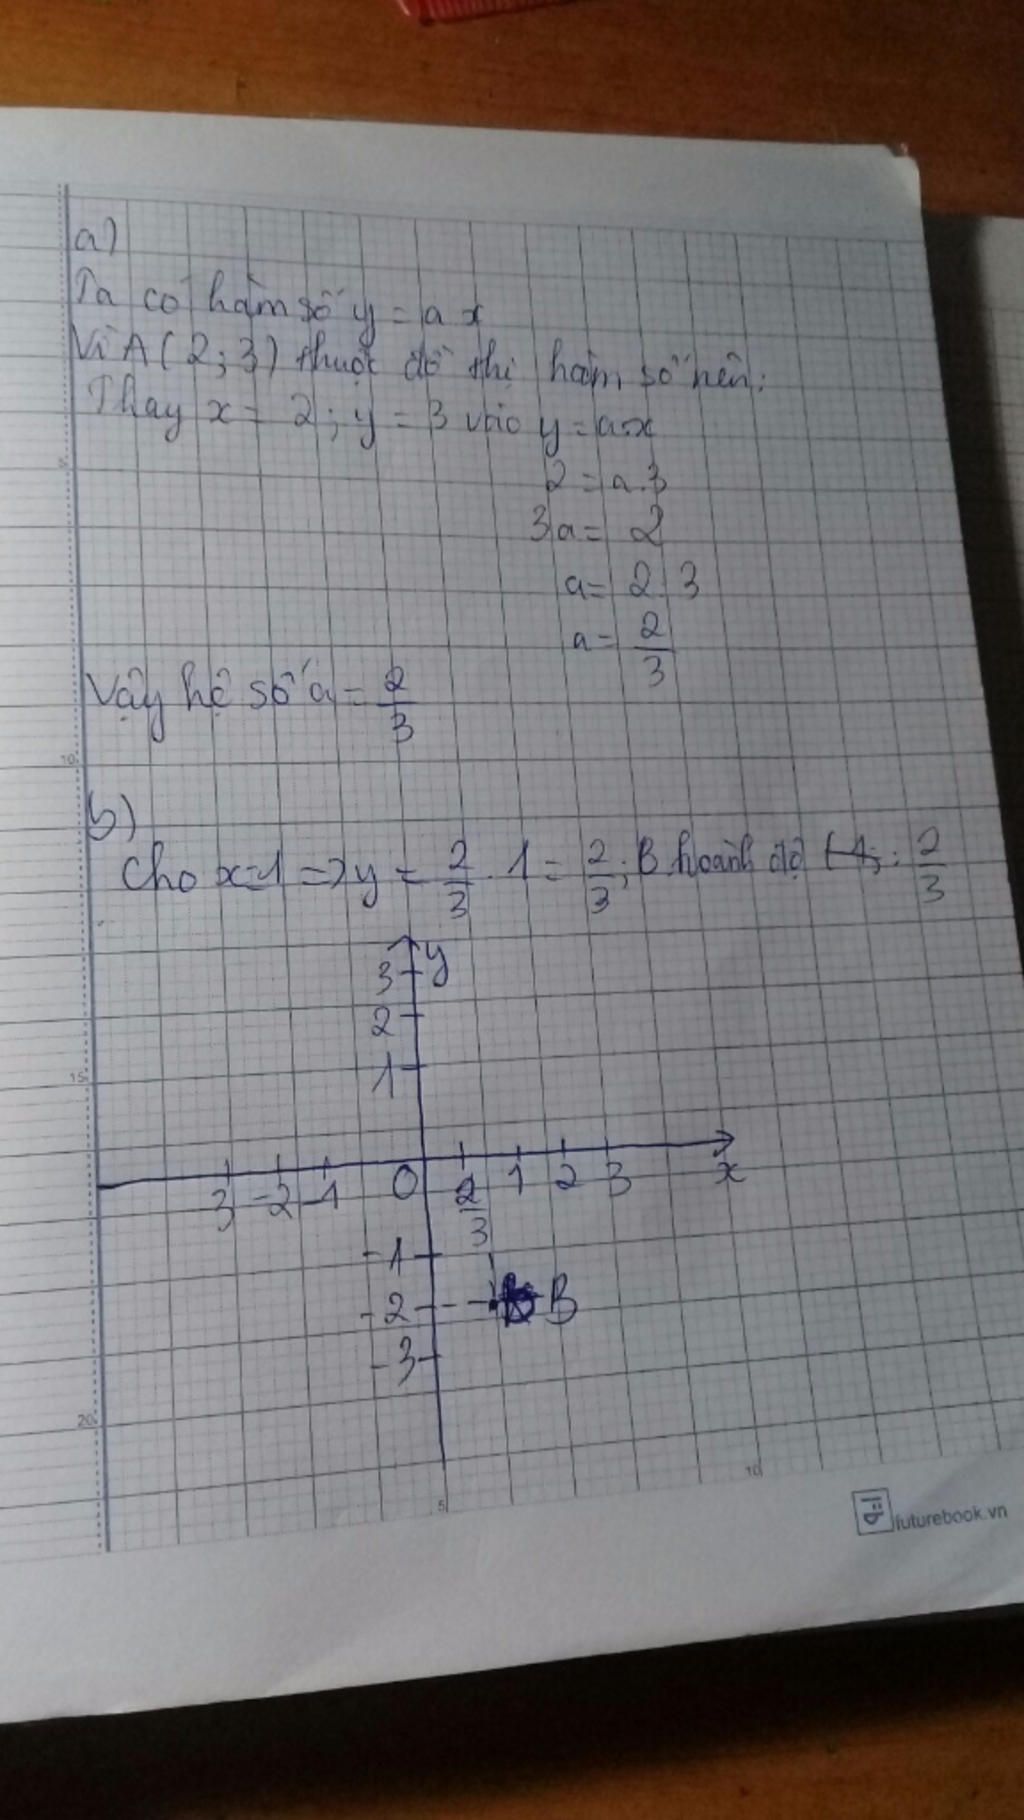 a)
Ta có hàm số y = a x
Vì A(2;3) thuộc đồ thị hàm số nên:
Thay x = 2; y = 3 vào y = a.x
2 = a.3
3a = 2
a = 2:3
a = 2/3
Vậy hệ số a = 2/3
b)
Cho x=1 => y = 2/3 . 1 = 2/3; B hoành độ : 2/3
y
3
2
1
3 -2 -1 0 2/3 1 2 3 x
-1
-2 B
-3
5
10
15
20
5
10
futurebook.vn